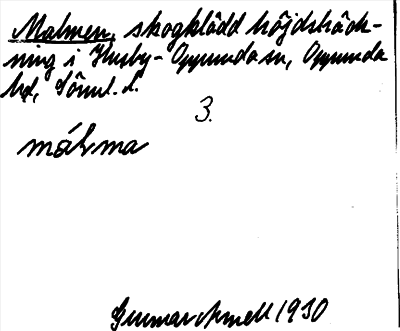 Malmen, skogklädd höjdsträck-
ning i Husby-Oppunda sn, Oppunda
hd, Söml. l.
3.
málma
Gunnar Arnell 1930